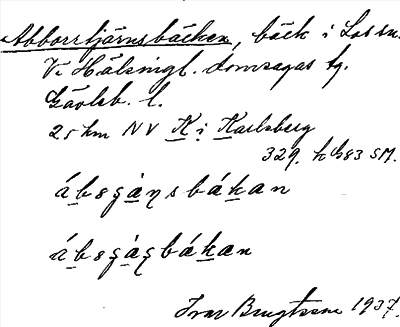 Abborrtjärnsbäcken, bäck i Los sn.
V. Hälsingl. domsagas tg.
Gävleb. l.
25 km NV K i Karlsberg
329. h 583 SM.
ábsgánsbákan
ábsgásbákan
Ivar Bengtsson 1937.